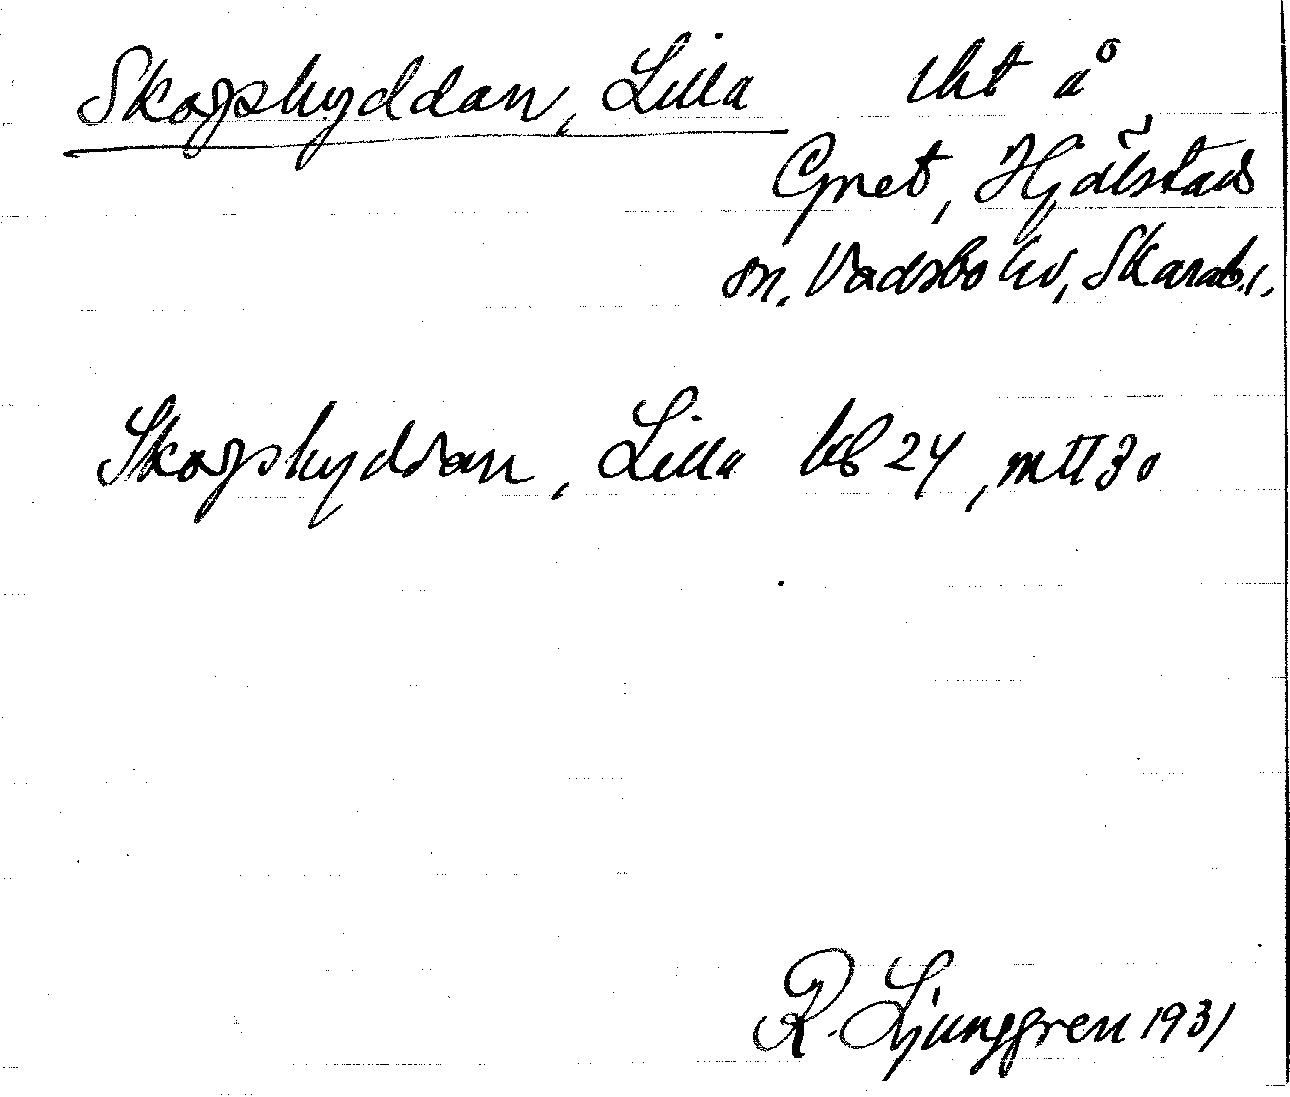 Skogshyddan, Lilla tht å
Gmet, Hjälstads
sn. Vadsbo hd, Skarab. l.
Skogshyddan, Lilla kb 24, mtl 30
R. Ljunggren 1931